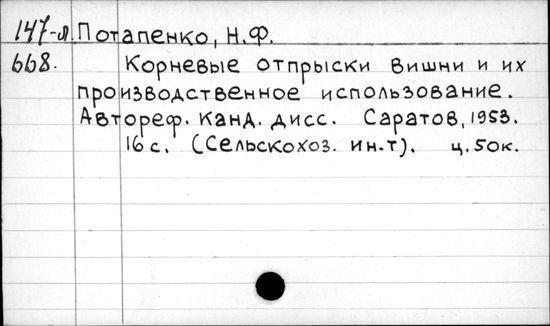 147-л. Потапенко, Н.Ф.
668. Корневые отпрыски вишни и их
производственное использование.
Автореф. канд. дисс. Саратов, 1953.
16 с. (Сельскохоз. ин-т). ц. 50к.